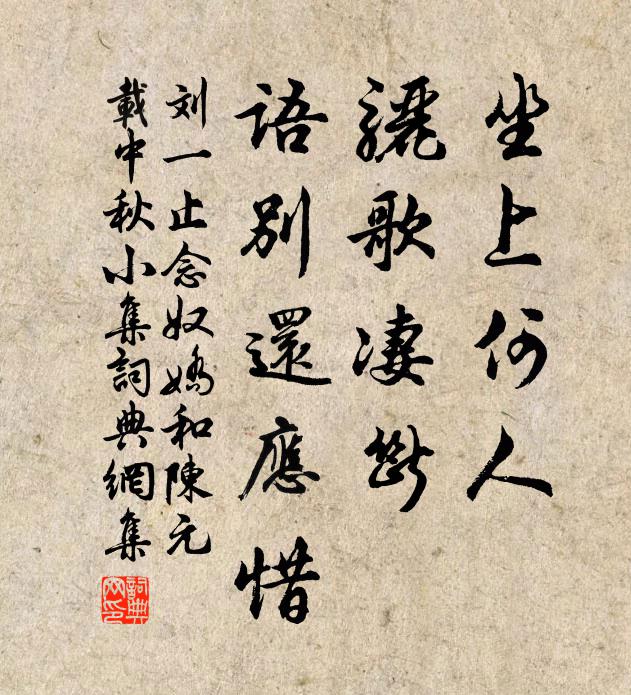 坐上何人
驪歌凄斷
語別還應惜
刘一止念奴嬌和陳元
載中秋小集詞典網集
詞典
网印